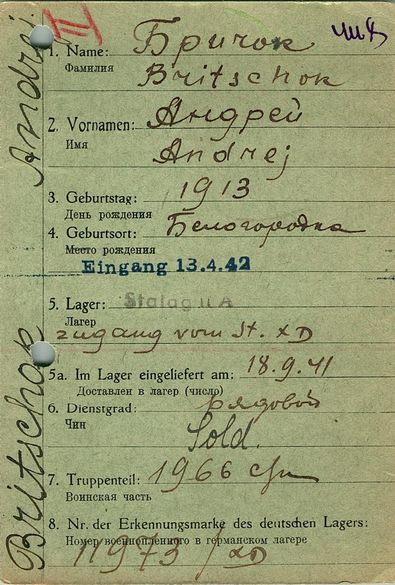 Britschok Andrej
IV
1. Name: Бричок
Фамилия
Britschok
2. Vornamen: Андрей
Имя
Andrej
3. Geburtstag: 1913
День рождения
4. Geburtsort: Белогородка
Место рождения
Eingang 13.4.42
5. Lager: Stalag II A
Лагер
zugang vom St. XD
5a. Im Lager eingeliefert am: 18.9.41
Доставлен в лагер (число)
6. Dienstgrad: рядовой
Чин
Sold.
7. Truppenteil: 1966
Воинская часть
8. Nr. der Erkennungsmarke des deutschen Lagers:
Номер военнопленного в германском лагере
11973 / XD